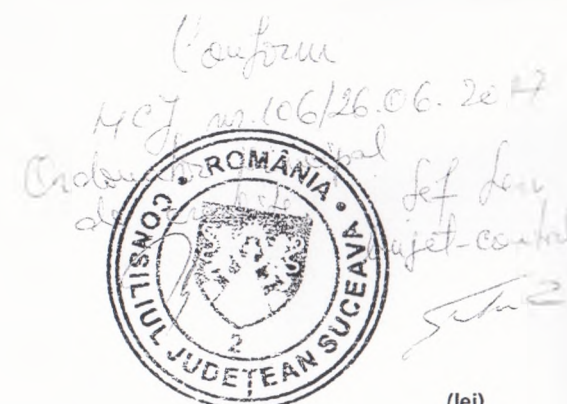 Conform
HCJ nr. 106/26.06.2017
Ordonator principal
de credite
Șef
ROMÂNIA
CONSILIUL JUDEȚEAN SUCEAVA
2
(lei)